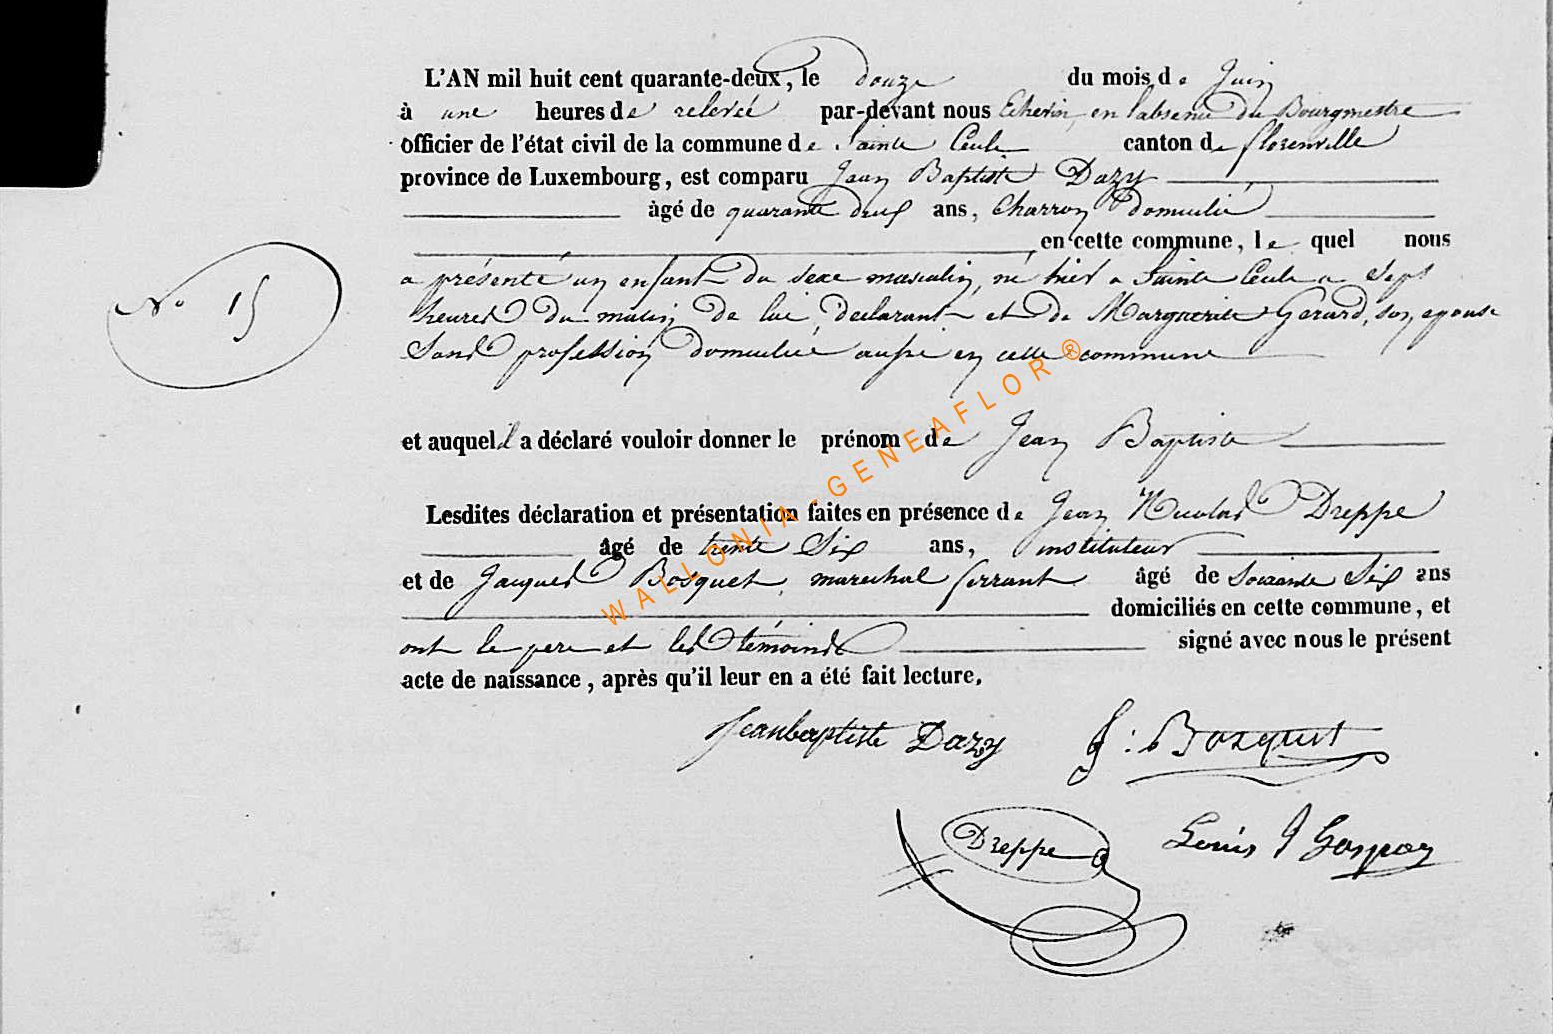 L'AN mil huit cent quarante-deux, le douze du mois de Juin
à une heures de relevée par-devant nous Echevin, en l'absence du Bourgmestre
officier de l'état civil de la commune de Sainte Cecile canton de florenville
province de Luxembourg, est comparu Jean Baptiste Dazy
âgé de quarante deux ans, Charron domicilié
en cette commune, le quel nous
a présenté un enfant du sexe masculin, né hier a Sainte Cecile a Sept
heures du matin de lui, declarant et de Marguerite Gerard, son epouse
Sans profession domiciliée aussi en cette commune
N° 15
et auquel il a déclaré vouloir donner le prénom de Jean Baptiste
Lesdites déclaration et présentation faites en présence de Jean Nicolas Dreppe
âgé de trente Six ans, instituteur
et de Jacques Bosquet, marechal ferrant âgé de Soixante Six ans
domiciliés en cette commune, et
ont le pere et les témoins signé avec nous le présent
acte de naissance, après qu'il leur en a été fait lecture.
Jeanbaptiste Dazy J: Bosquet
Dreppe Louis J
WALLONIA-GENEAFLOR®